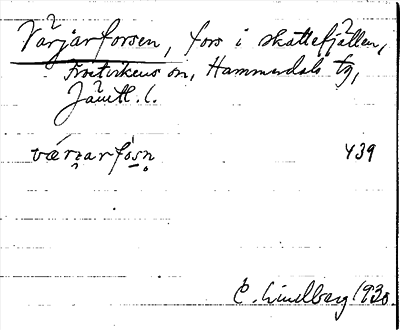 Värjarforsen, fors i skattefjällen,
Frostvikens sn, Hammerdals tg,
Jämtl. l.
várjarfósn̥ 439
C. Lindberg 1930.